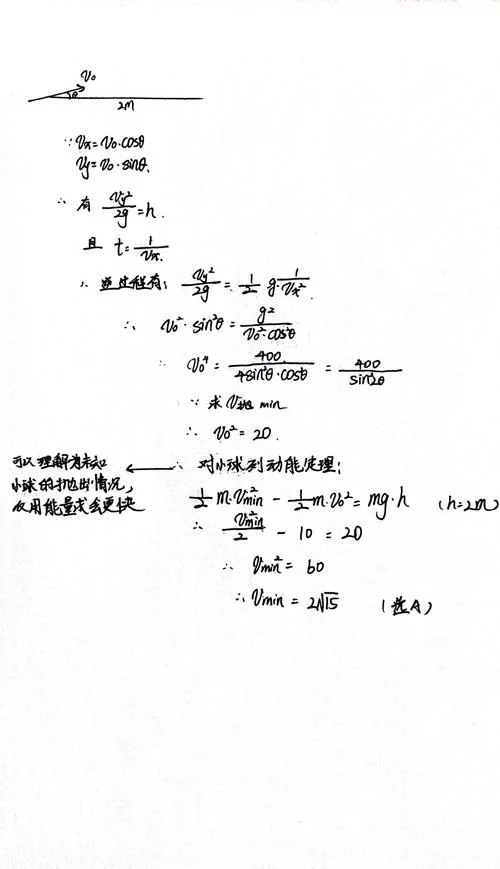 V₀
θ
2m
∵ Vx=V₀·cosθ
Vy=V₀·sinθ.
∴ 有 Vy²/2g = h.
且 t= 1/Vx.
∴ 过程有: Vy²/2g = 1/2 g·1/Vx².
∴ V₀²·sin²θ = g²/V₀²·cos²θ
∴ V₀⁴ = 400/4sin²θ·cos²θ = 400/sin²2θ
∵ 求V抛 min
∴ V₀² = 20.
可以理解为未知
小球的抛出情况,
仅用能量式会更快
← ∴ 对小球列动能定理:
1/2 m·Vmin² - 1/2 m·V₀² = mg·h (h=2m)
∴ Vmin²/2 - 10 = 20
∴ Vmin² = 60
∴ Vmin = 2√15 (选A)